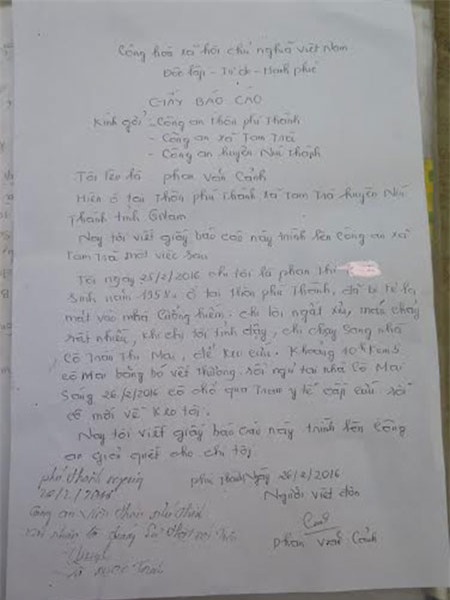 Cộng hoà xã hội chủ nghĩa việt Nam
Độc lập - Tự do - Hạnh phúc
GIẤY BÁO CÁO
Kính gởi - Công an thôn phú Thành
- Công an xã Tam Trà
- Công an huyện Núi Thành
Tôi tên là phan văn Cảnh
Hiện ở tại Thôn phú Thành xã Tam Trà huyện Núi
Thành tỉnh QNam
Nay tôi viết giấy báo cáo này trình lên Công an xã
Tam Trà một việc sau
Tối ngày 25/2/2016 chị tôi là phan Thị
Sinh năm 1958. ở tại thôn phú Thành, đã bị kẻ lạ
mặt vào nhà cưỡng hiếm. chị tôi ngất xủi, máu chảy
rất nhiều, khi chị tôi tỉnh dậy, chị chạy sang nhà
cô Trần Thị Mai, để kêu cứu. Khoảng 10h kém 5
cô Mai băng bó vết thương. rồi ngủ tại nhà cô Mai
Sáng 26/2/2016 cô chở qua Trạm y tế cấp cứu rồi
cô mới về kêu tôi.
Nay tôi viết giấy báo cáo này trình lên Công
an giải quyết cho chị tôi.
phú Thành ngày
26/2/2016
Công an viên thôn phú Thành
phú Thành Ngày 26/2/2016
Người viết đơn
phan văn Cảnh